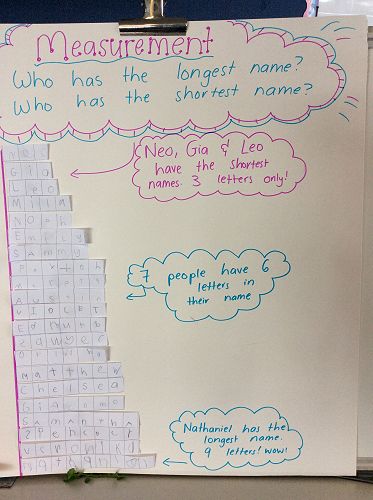 Measurement
Who has the longest name?
Who has the shortest name?
Neo, Gia & Leo
have the shortest
names. 3 letters only!
7 people have 6
letters in
their name
Nathaniel has the
longest name.
9 letters! wow!
Neo
Gia
Leo
Milla
Noah
Emily
Sammy
VIOLET
Sawyer
Matthew
Chelsea
Samantha
Spencer
Veronika
Nathaniel